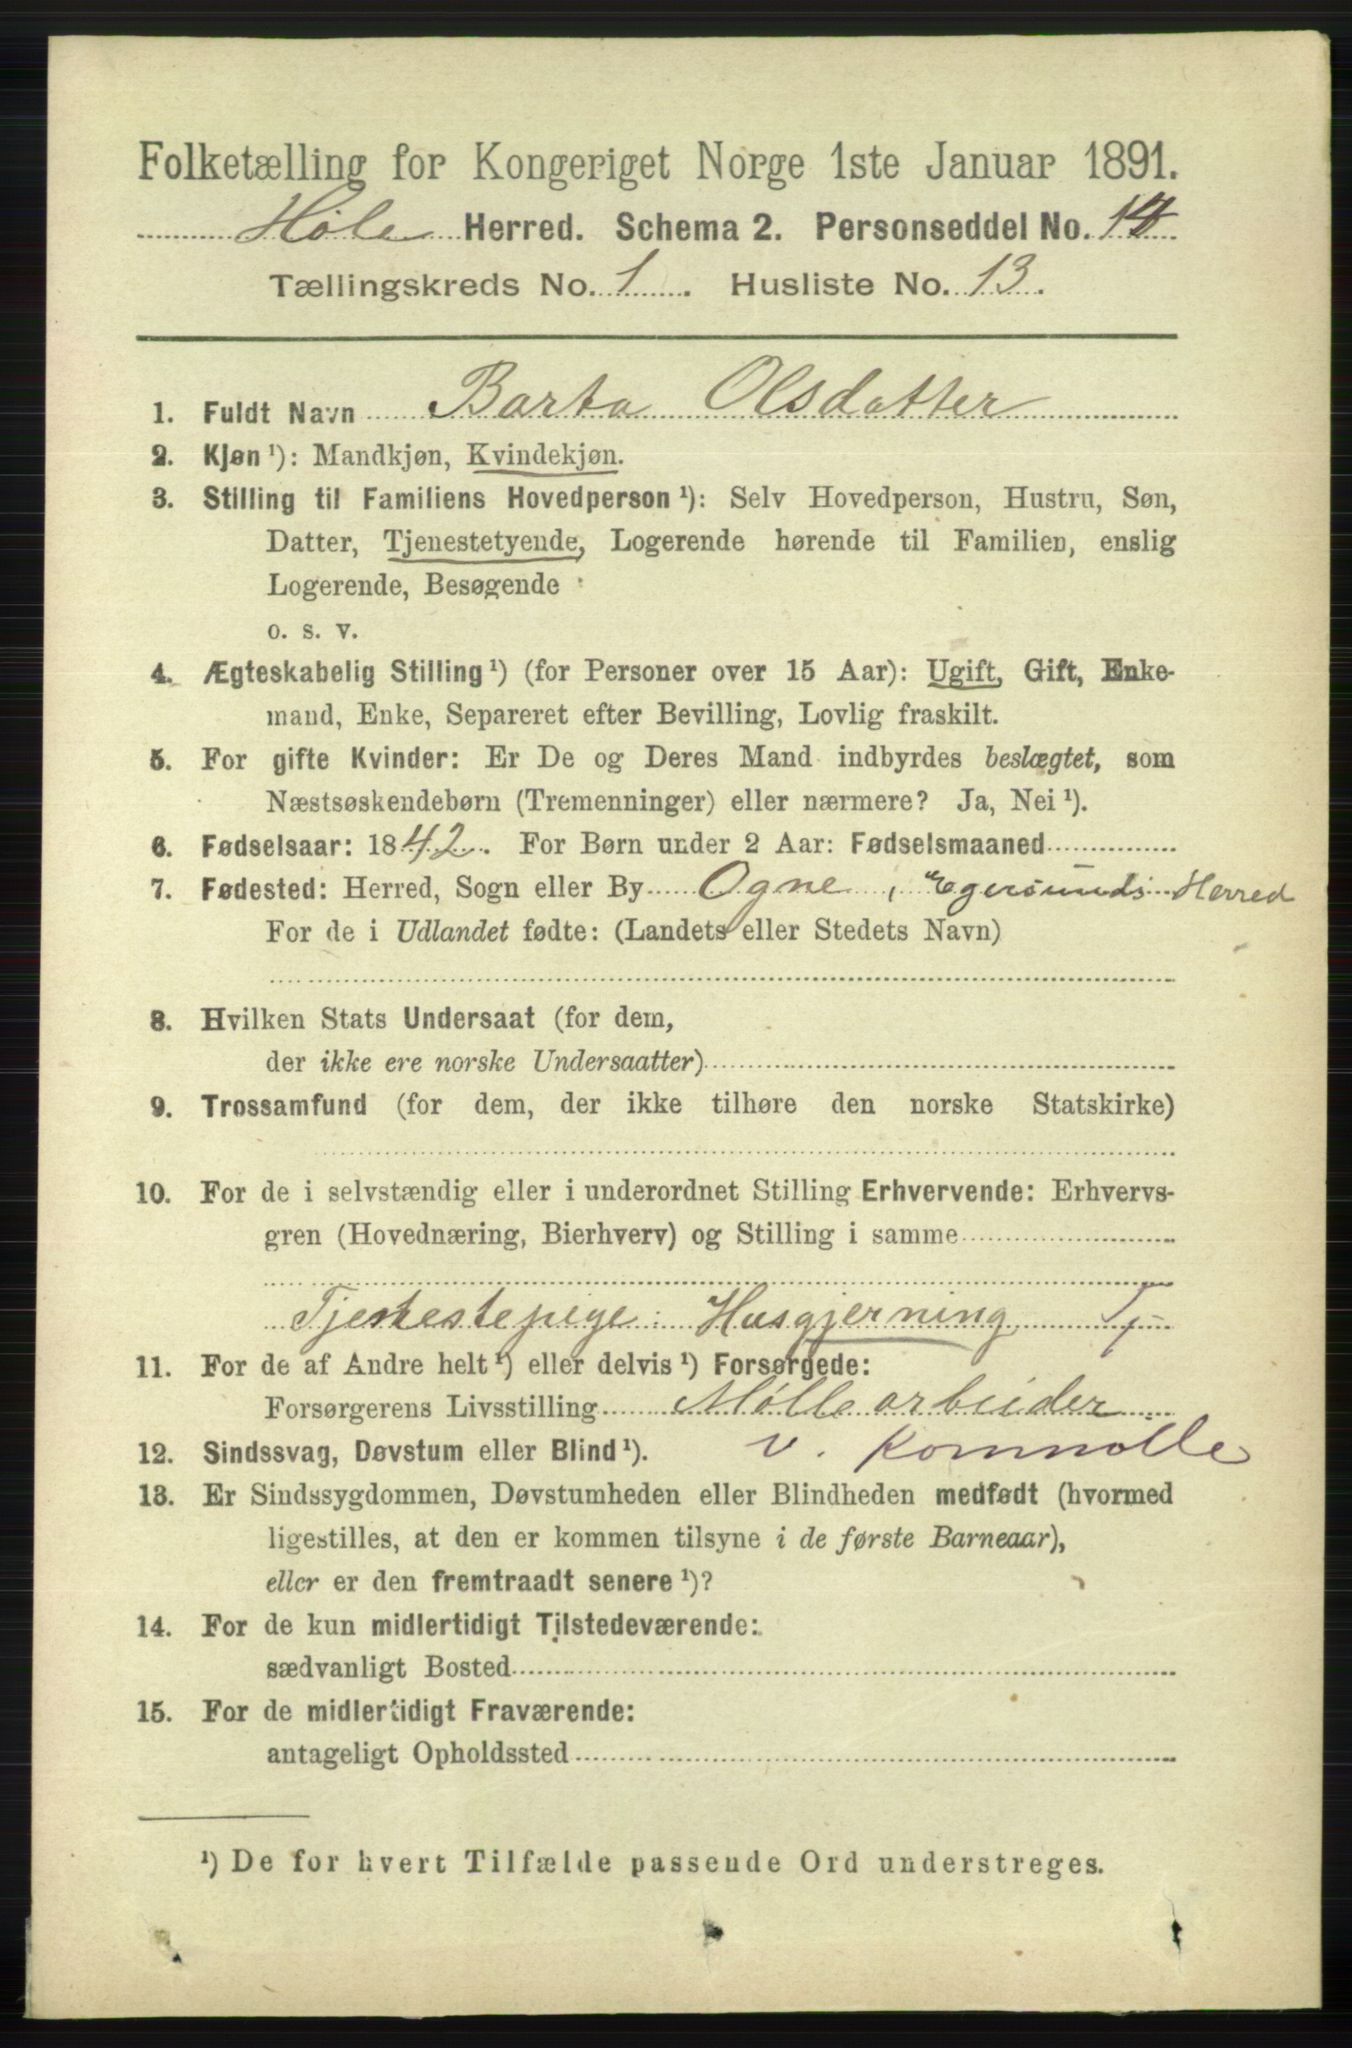 Folketælling for Kongeriget Norge 1ste Januar 1891.
Høle Herred. Schema 2. Personseddel No. 14
Tællingskreds No. 1. Husliste No. 13.
1. Fuldt Navn Barta Olsdatter
2. Kjøn ¹): Mandkjøn, Kvindekjøn.
3. Stilling til Familiens Hovedperson ¹): Selv Hovedperson, Hustru, Søn,
Datter, Tjenestetyende, Logerende hørende til Familien, enslig
Logerende, Besøgende
o. s. v.
4. Ægteskabelig Stilling ¹) (for Personer over 15 Aar): Ugift, Gift, Enke-
mand, Enke, Separeret efter Bevilling, Lovlig fraskilt.
5. For gifte Kvinder: Er De og Deres Mand indbyrdes beslægtet, som
Næstsøskendebørn (Tremenninger) eller nærmere? Ja, Nei ¹).
6. Fødselsaar: 1842. For Børn under 2 Aar: Fødselsmaaned
7. Fødested: Herred, Sogn eller By Ogne, Egersunds Herred
For de i Udlandet fødte: (Landets eller Stedets Navn)
8. Hvilken Stats Undersaat (for dem,
der ikke ere norske Undersaatter)
9. Trossamfund (for dem, der ikke tilhøre den norske Statskirke)
10. For de i selvstændig eller i underordnet Stilling Erhvervende: Erhvervs-
gren (Hovednæring, Bierhverv) og Stilling i samme
Tjenestepige: Husgjerning Tj-
11. For de af Andre helt ¹) eller delvis ¹) Forsørgede:
Forsørgerens Livsstilling Møllearbeider
12. Sindssvag, Døvstum eller Blind ¹). v. Kornmølle
13. Er Sindssygdommen, Døvstumheden eller Blindheden medfødt (hvormed
ligestilles, at den er kommen tilsyne i de første Barneaar),
eller er den fremtraadt senere ¹)?
14. For de kun midlertidigt Tilstedeværende:
sædvanligt Bosted
15. For de midlertidigt Fraværende:
antageligt Opholdssted
¹) De for hvert Tilfælde passende Ord understreges.